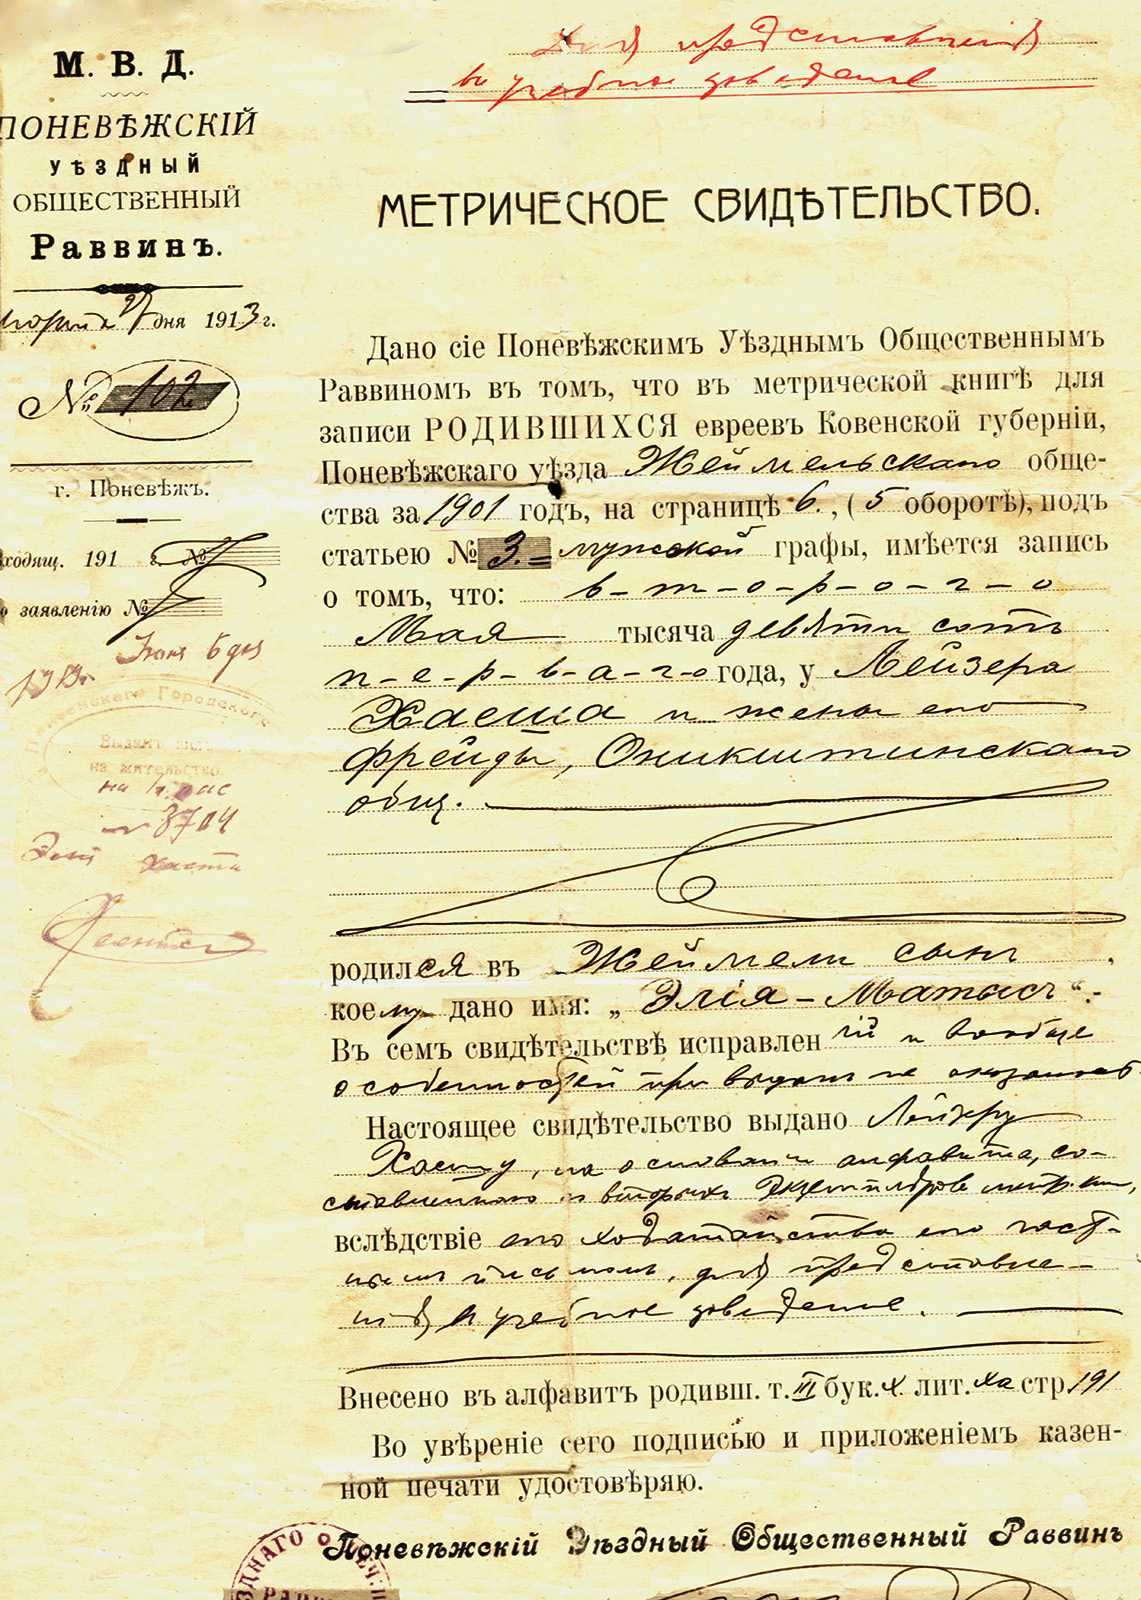 Для представленія
въ учебное заведеніе
М. В. Д.
ПОНЕВѢЖСКІЙ
УѢЗДНЫЙ
ОБЩЕСТВЕННЫЙ
Раввинъ.
27 дня 1913 г.
№ 102
г. Поневѣж.
ходящ. 191 №
о заявленію №
Іюня 6 дня
1913 г.
Городского
Выданъ
на жительство.
на
№ 8704
МЕТРИЧЕСКОЕ СВИДѢТЕЛЬСТВО.
Дано сіе Поневѣжскимъ Уѣзднымъ Общественнымъ
Раввиномъ въ томъ, что въ метрической книгѣ для
записи РОДИВШИХСЯ евреевъ Ковенской губерніи,
Поневѣжскаго уѣзда Жеймельскаго обще-
ства за 1901 годъ, на страницѣ 6., (5 оборотѣ), подъ
статьею № 3.= мужской графы, имѣется запись
о томъ, что: в-т-о-р-о-г-о
Мая тысяча девятисотъ
п-е-р-в-а-г-о года, у Лейзера
Хаеша и жены его
Фрейды, Оникштинскаго
общ.
родился въ Жеймели сынъ,
коему дано имя: „Элія-Матысъ“.-
Въ семъ свидѣтельствѣ исправленій и вообще
особенностей при выдачѣ не оказалось
Настоящее свидѣтельство выдано Лейзеру
Хаешу, на основаніи алфавита, со-
ставленнаго и вторыхъ экземпляровъ метр. кн.,
вслѣдствіе его ходатайства его част-
нымъ письмомъ, для представле-
нія въ учебное заведеніе.
Внесено въ алфавитъ родивш. т. III бук. Х. лит. ха стр 191
Во увѣреніе сего подписью и приложеніемъ казен-
ной печати удостовѣряю.
Поневѣжскій Уѣздный Общественный Раввинъ